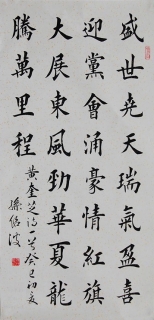 盛世堯天瑞氣盈喜
迎黨會涌豪情紅旗
大展東風勁華夏龍
騰萬里程
黄奎芝詩一首癸巳初夏